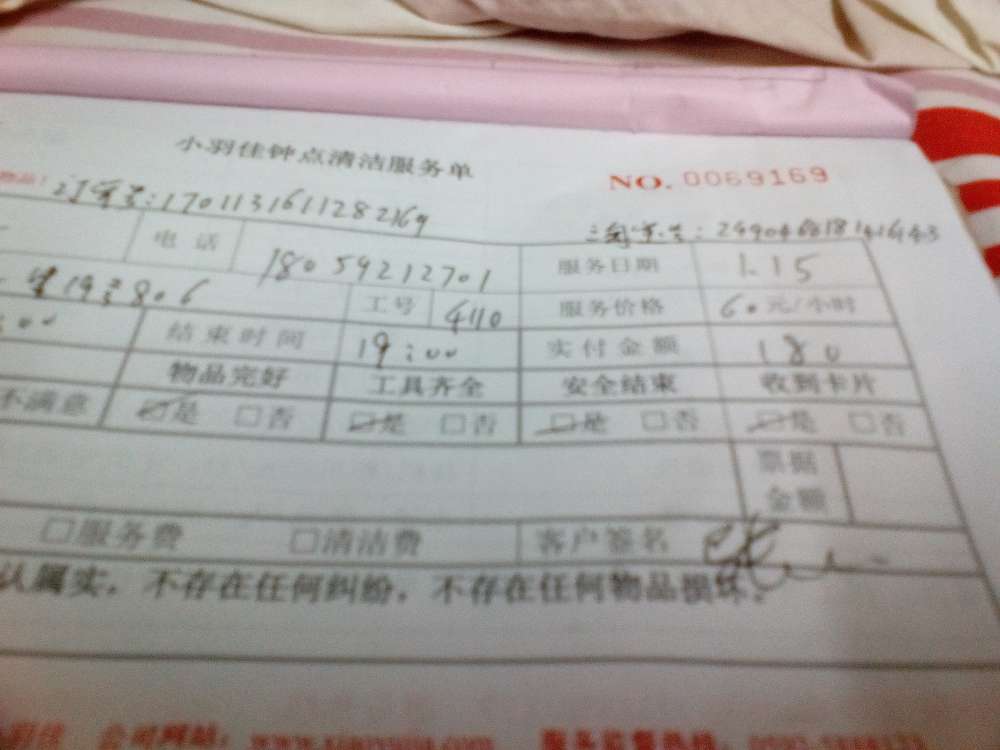 小羽佳钟点清洁服务单
NO. 0069169
物品!
订单号:1701131611282169
淘宝号:
电话 18059212701 服务日期 1.15
806 工号 4110 服务价格 60元/小时
:00 结束时间 19:00 实付金额 180
物品完好 工具齐全 安全结束 收到卡片
不满意 是 □否 是 □否 是 □否 是 □否
票据
金额
□服务费 □清洁费 客户签名
认属实，不存在任何纠纷，不存在任何物品损坏。
羽佳 公司网站: 服务监督热线: